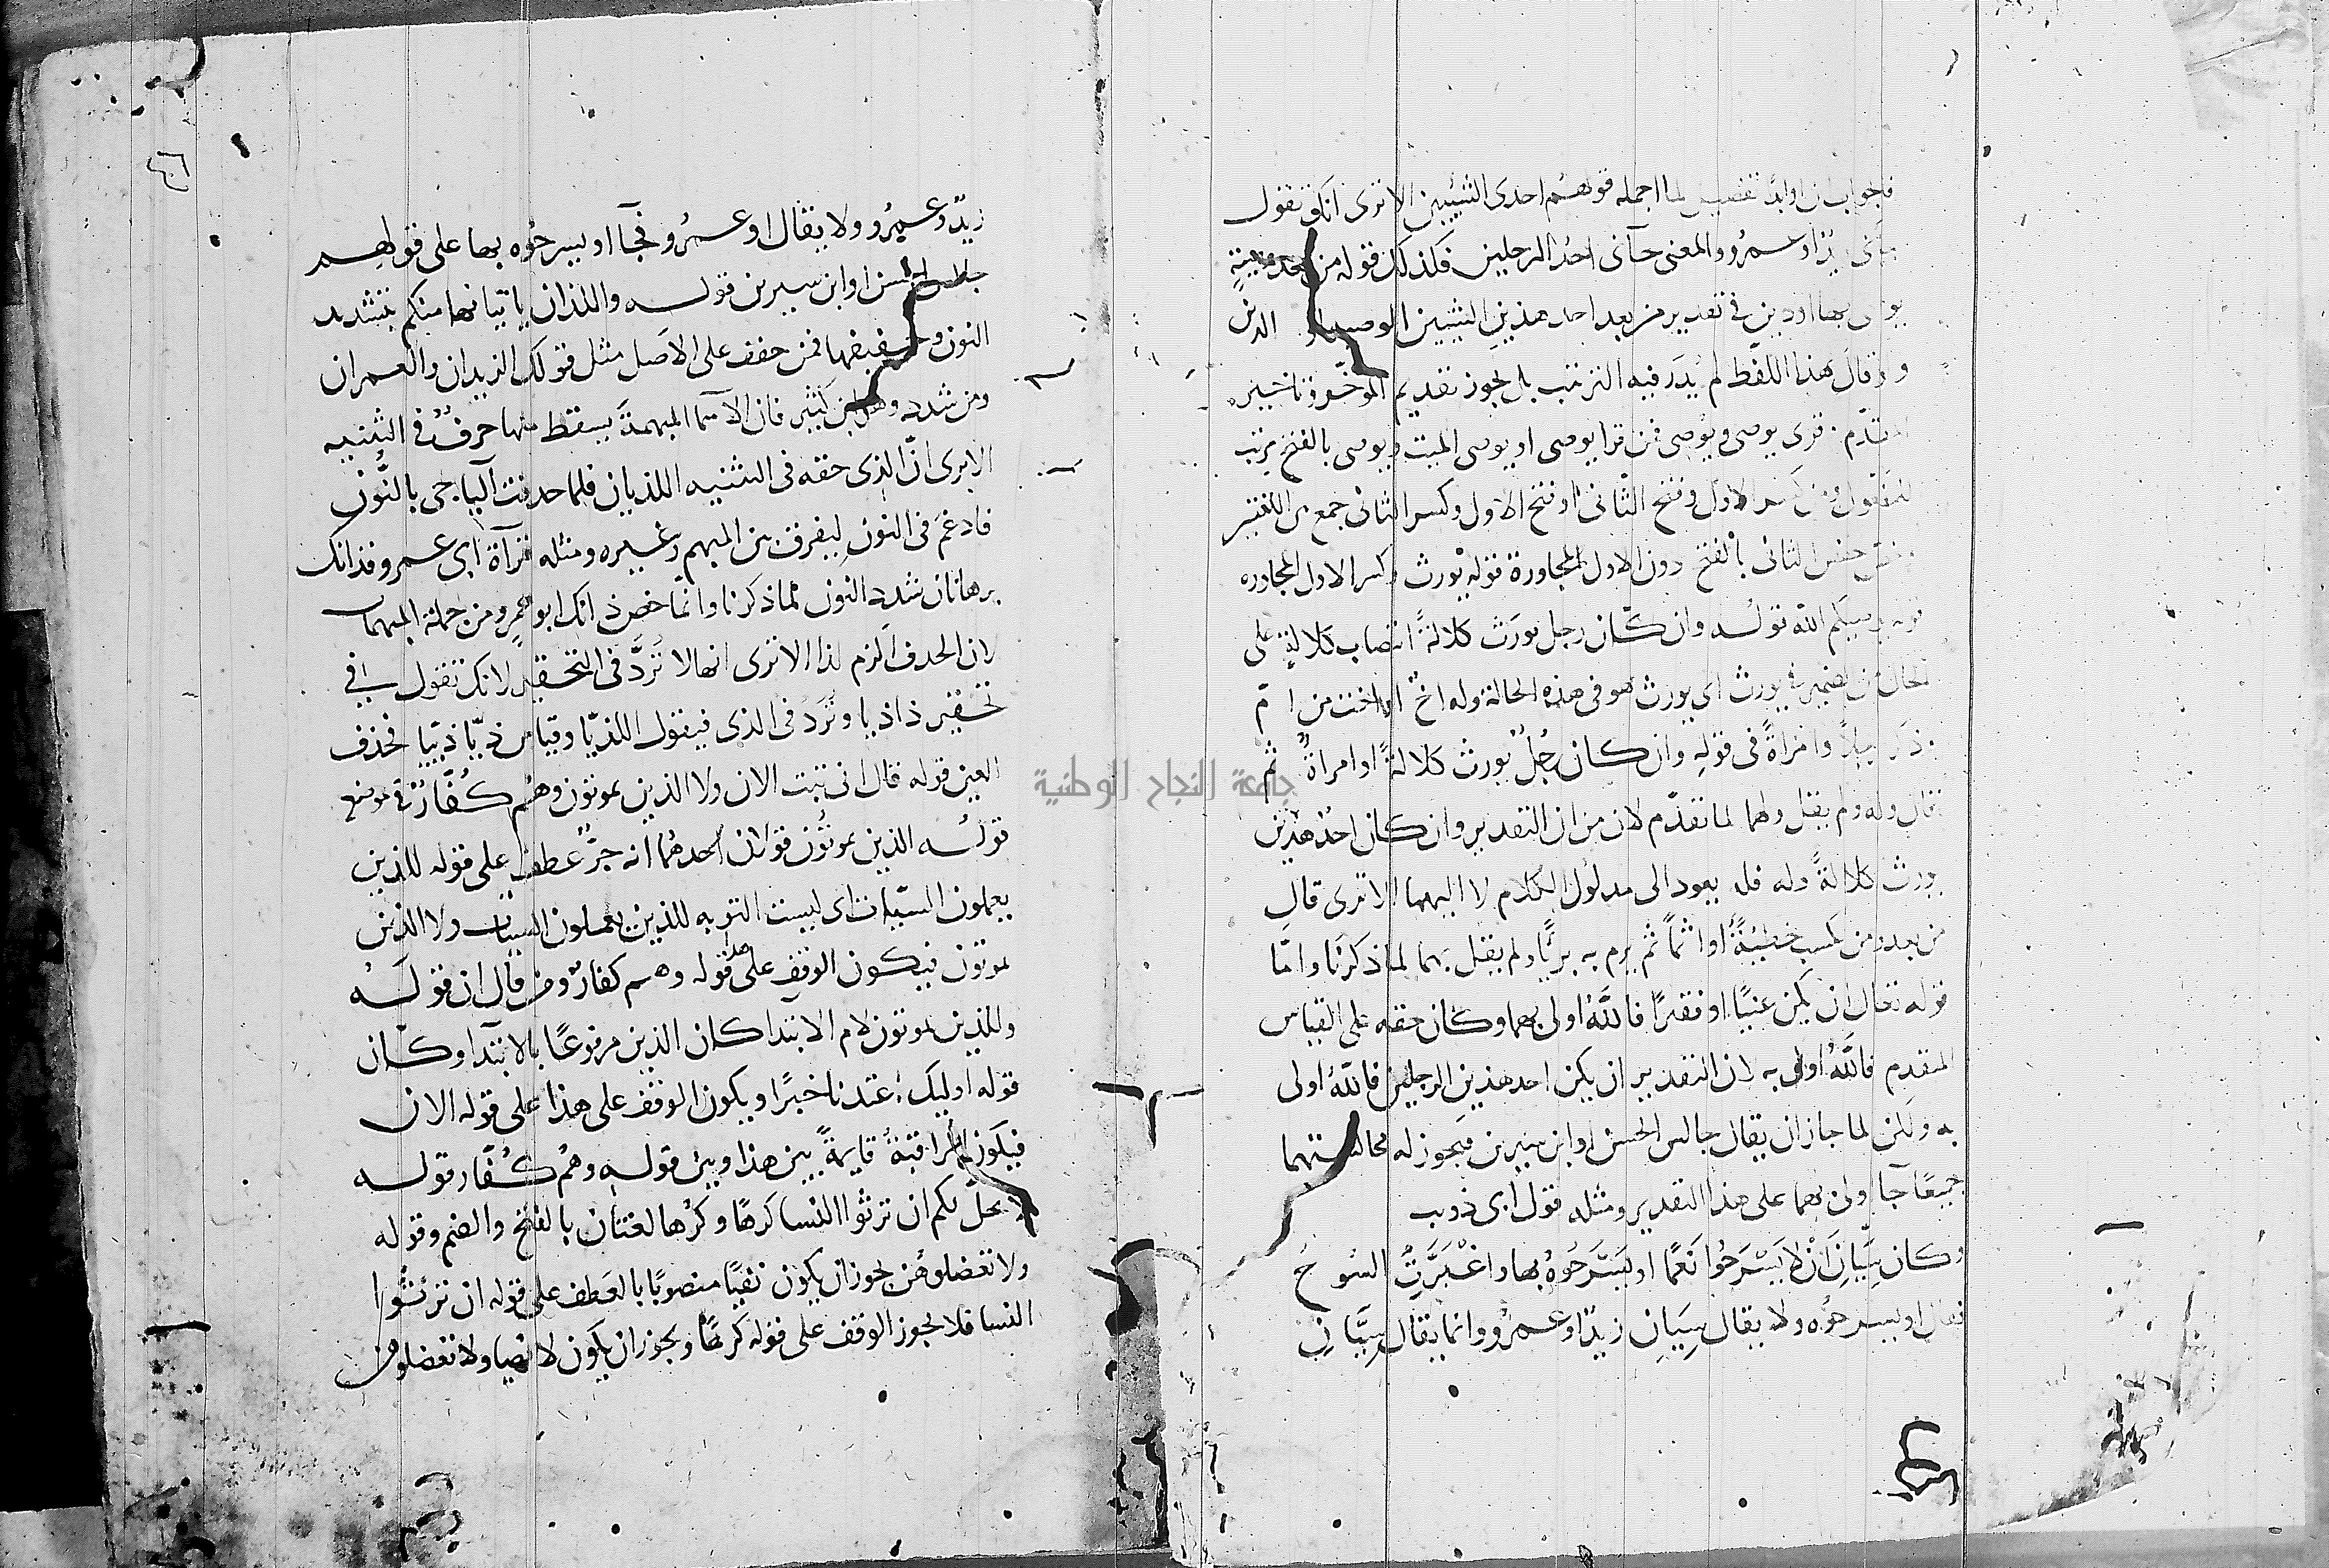 فجوابه ان او ابدا تفصيل لما اجمله قولهم احدى الشيئين الا ترى انك تقول
جآنى زيدٌ او عمرو والمعنى جآنى احدُ الرجلين فكذلك قوله من بعد وصيةٍ
يوصى بها او دين فى تقدير من بعد احد هذين الشيئين الوصية او الدين
ولو قال هذا اللفظ لم يُدر فيه الترتيب بل يجوز تقديم المؤخّر وتاخير
المتقدّم قرى يوصى ويُوصى فمن قرا يوصى اى يوصى الميت ويوصى بالفتح مرتب
للمفعول ومن كسر الاول وفتح الثانى او فتح الاول وكسر الثانى جمع بين اللغتين
حفص الثانى بالفتح دون الاول لمجاورة قوله يُورث وكسر الاول لمجاوره
قوله يوصيكم الله قولـه وان كان رجل يورَث كلالةً انتصاب كلالةٍ على
الحال من الضمير فى يورث اى يورث هو فى هذه الحالة وله اخٌ او اخت من امّ
ذكر رجلاً وامراةً فى قوله وان كان رجُلٌ يورث كلالةً او امراةٌ ثم
قال وله ولم يقل ولهما لما تقدّم لان من ان التقدير وان كان احدُ هذين
يورث كلالةً وله فله يعود الى مدلول الكلام لا اليهما الا ترى قال
من بعد ومن يكسب خطيئةً او اثماً ثم يرم به بريًّا ولم يقل بهما لما ذكرنا وامّا
قوله تعالى ان يكن غنيًا او فقيرًا فاللهُ اولى بهما وكان حقه على القياس
المتقدم فاللهُ اولى به لان التقدير ان يكن احد هذين الرجلين فاللهُ اولى
به ولكن لما جاز ان يقال جالس الحسن او ابن سيرين فيجوز له مجالستهما
جميعًا جآ اولى بهما على هذا التقدير ومثله قول ابى ذويب
وكان سِيّانِ اَنْ لا يَسْرَحُوا نَعَمًا او يَسْرَحُوهُ بها واغْبَرَّتِ السُوحُ
فقال او يسرحُوه ولا يقال سِيَانِ زيدٌ او عمرُو وانما يقال سِيَّانِ
٤٦
زيدٌ وعمرُو ولا يقال او عمرُو فجآ او يسرحُوه بها على قولهم
جالس الحسن او ابن سيرين قولـه واللذان ياتيانها منكم بتشديد
النون وتخفيفها فمن خفف على الاصل مثل قولك الزيدان والعمران
ومن شدد وهو ابن كثير فان الاسما المبهمةَ يسقط منها حرفٌ فى التثنيه
الا يرى انّ الذى حقه فى التثنيه اللذيان فلما حدفت اليا جى بالنُون
فادغمَ فى النون ليفرق بين المبهم وغيره ومثله قرآة ابى عمرو فذانك
برهانان شدد النون لما ذكرنا وانما خص ذانك ابو عمرو من جملة المبهمات
لان الحدف الزم لذا الا ترى انها لا تُردَّ فى التحقير لانك تقول فى
تحقير ذا ذيا وتُردّ فى الذى فيقول اللذيّا وقياس ذيّا ذييّا فحذف
العين قوله قال انى تبت الان ولا الذين يموتون وهُم كُفّارٌ فى موضع
قولُـه الذين يموتُون قولان احدهُما انه جرٌّ عطف على قوله للذين
يعملون السيّات اى ليست التوبه للذين يعملون السيات ولا الذين
يموتون فيكون الوقف على هذا قوله وهم كفارٌ ومن قال ان قولـه
وللذين يموتون لام الابتدا كان الذين مرفوعًا بالابتدا وكان
قوله اوليك اعتدنا خبرًا ويكون الوقف على هذا على قوله الان
فيكون المراقبةُ قايمةً بين هذا وبين قوله وهُم كُفّار قولـه
لا يحلّ لكم ان ترثوا النسا كَرهًا وكُرها لغتان بالفتح والضم وقوله
ولا تعضلوهُن يجوز ان يكون نفيًا منصوبًا بالعطف على قوله ان ترثُوا
النسا فلا يجوز الوقف على قوله كرهًا ويجوز ان يكون لا نهيا ولا تعضلوهن
جامعة النجاح الوطنية